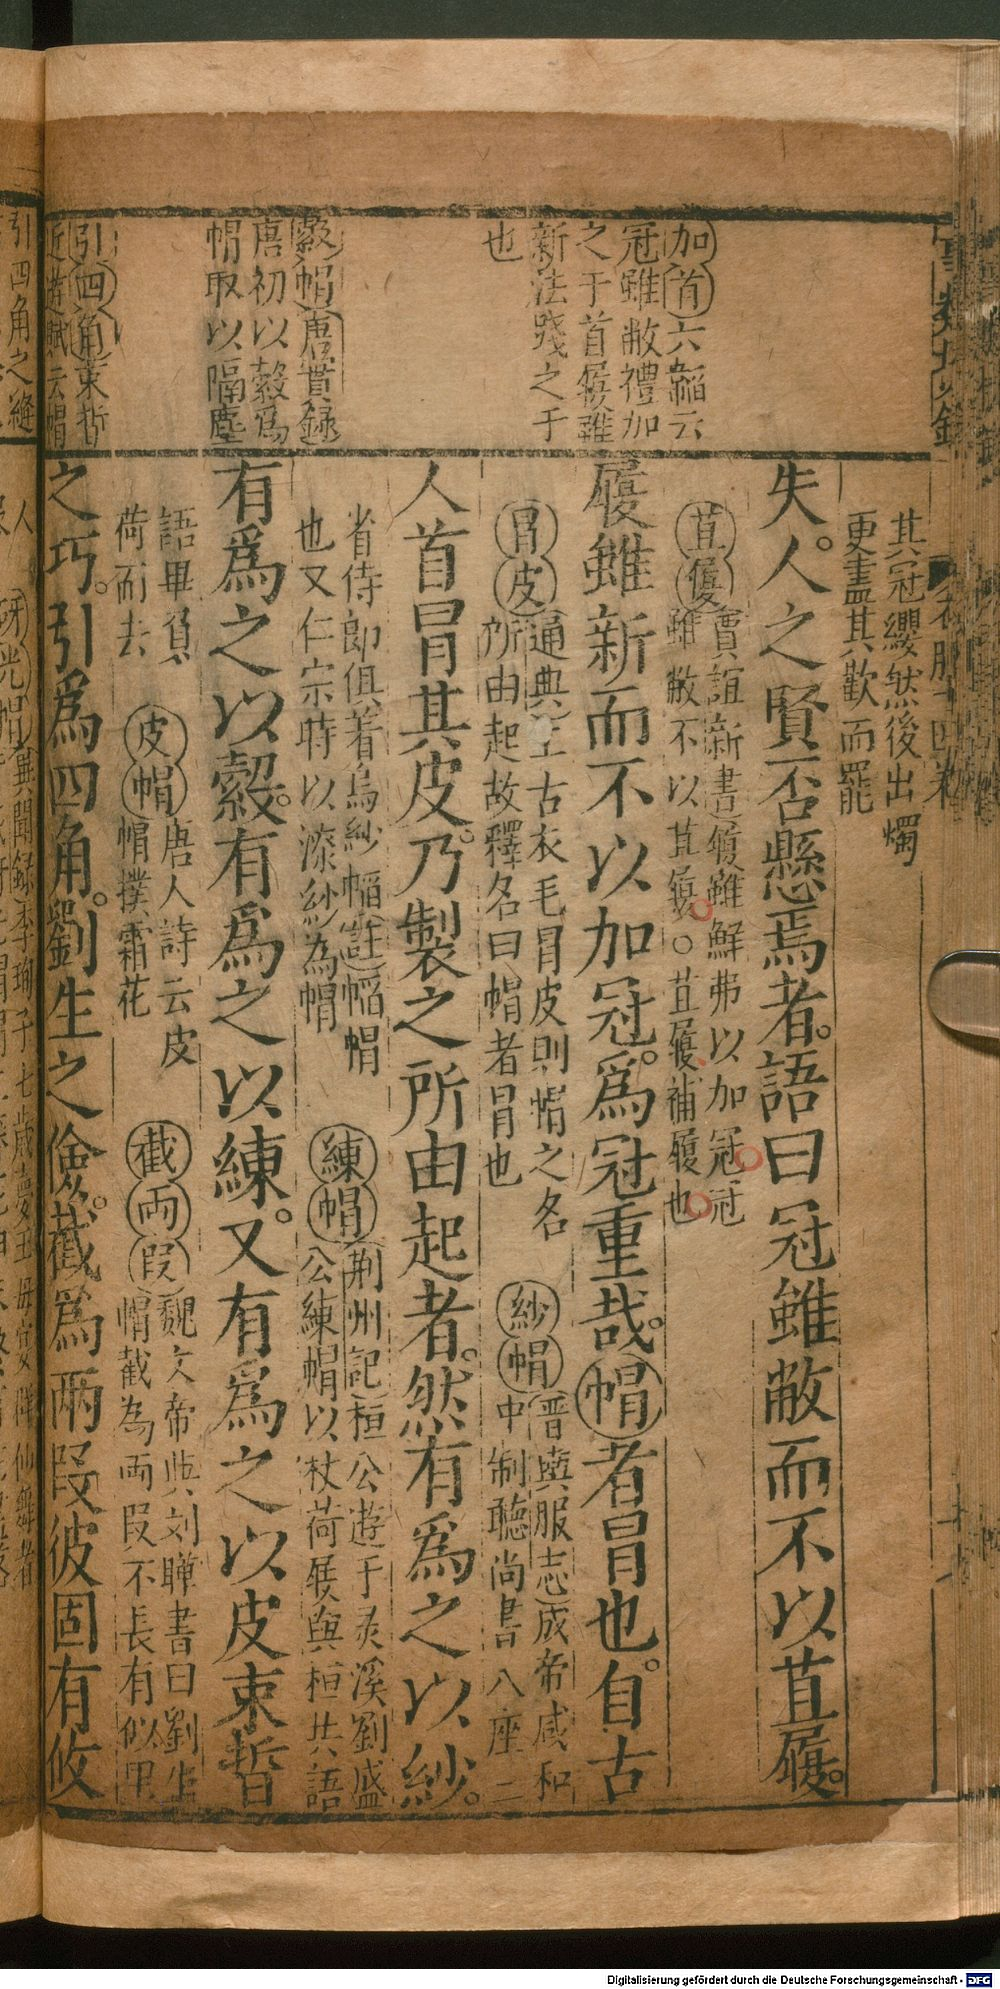 加首六韜云
冠雖敝禮加
之于首履雖
新法踐之于
也
縠帽唐實録
唐初以縠爲
帽取以隔塵
引四角束晳
近遊賦云帽
引四角之縫
其冠纓然後出燭
更盡其歡而罷
失人之賢否懸焉者語曰冠雖敝而不以苴履
苴履賈誼新書履雖鮮弗以加冠冠
雖敝不以苴履○苴履補履也
履雖新而不以加冠爲冠重哉帽者冐也自古
冐皮通典上古衣毛冐皮則帽之名
所由起故釋名曰帽者冐也
紗帽晋輿服志成帝咸和
中制聽尚書八座二
人首冐其皮乃製之所由起者然有爲之以紗
省侍郎俱着烏紗㡌註㡌帽
也又仁宗時以漆紗為帽
練帽荆州記桓公遊于灵溪劉盛
公練帽以杖荷屐與桓共語
有爲之以縠有爲之以練又有爲之以皮束晳
語畢負
荷而去
皮帽唐人詩云皮
帽撲霜花
截兩叚魏文帝典刘曄書曰劉生
帽截為兩叚不長有似里
之巧引爲四角劉生之儉截爲兩叚彼固有攸
Digitalisierung gefördert durch die Deutsche Forschungsgemeinschaft - DFG